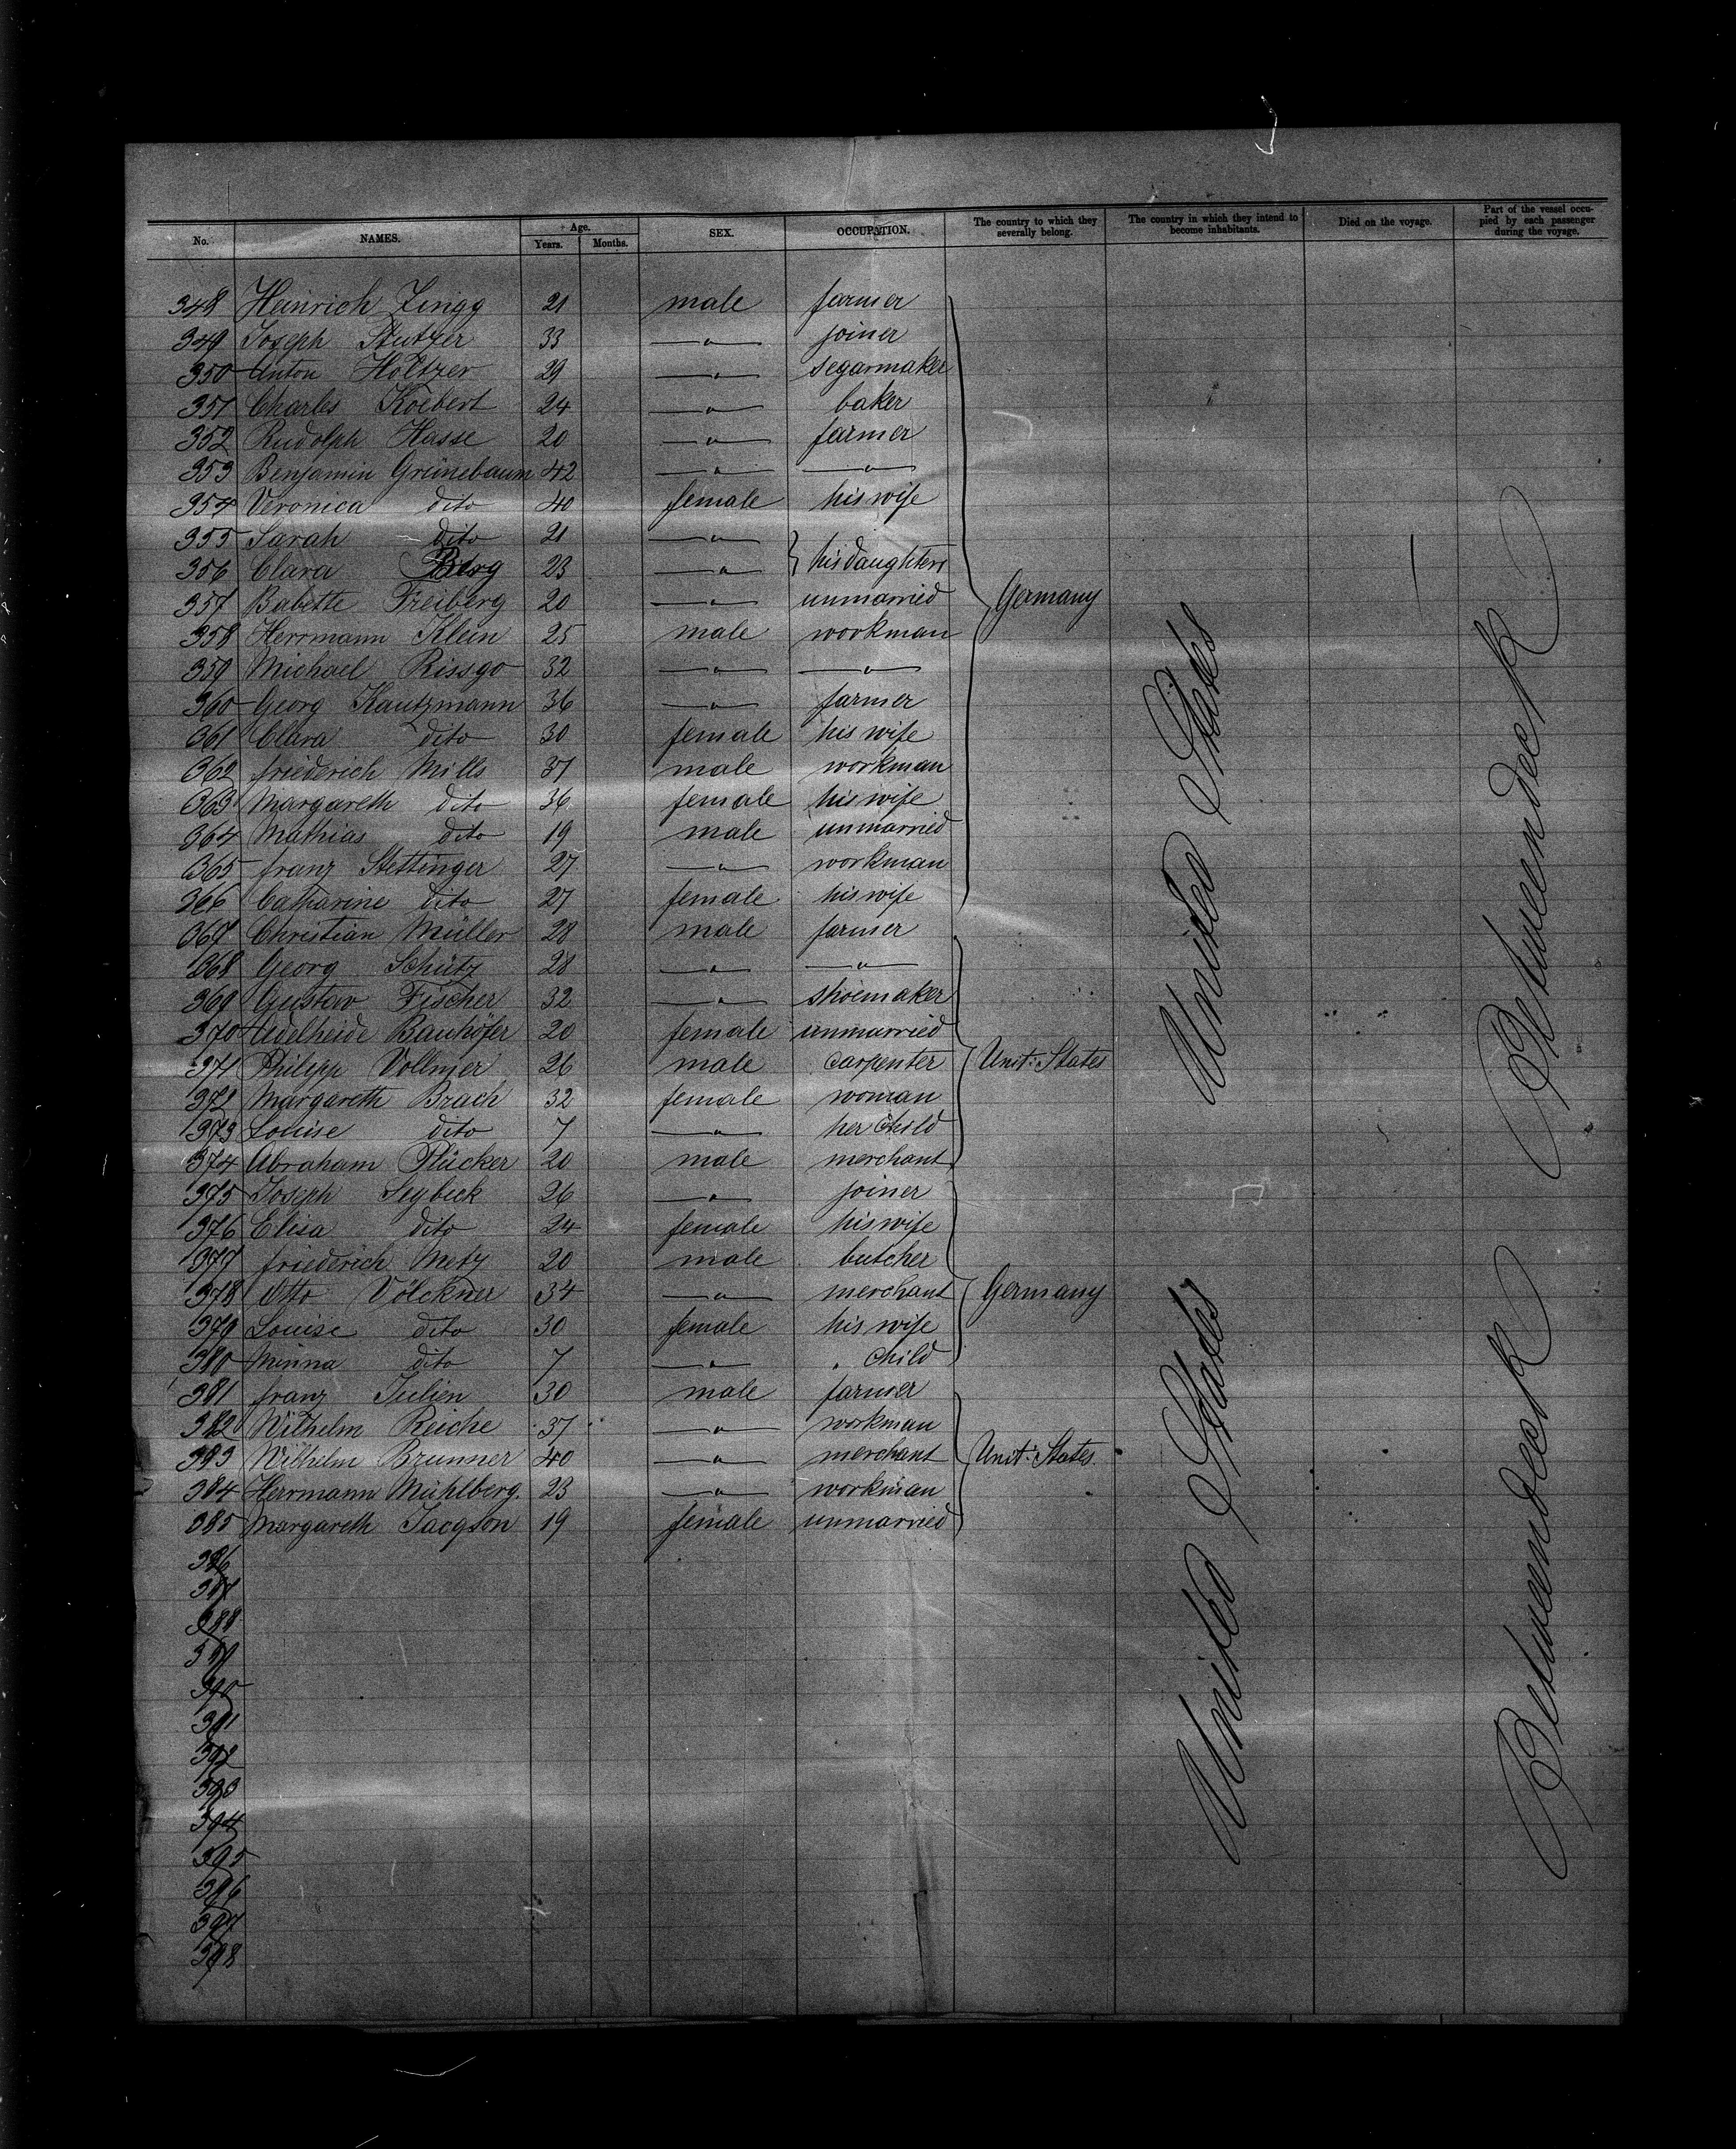 No. NAMES. Age. Years. Months. SEX. OCCUPATION. The country to which they severally belong. The country in which they intend to become inhabitants. Died on the voyage. Part of the vessel occupied by each passenger during the voyage.
348 Heinrich Zrigg 21 male farmer
349 Joseph Stutzer 33 —"— joiner
350 Anton Holtzer 29 —"— segarmaker
351 Charles Koebert 24 —"— baker
352 Rudolph Hasse 20 —"— farmer
353 Benjamin Grünebaum 42 —"— —"—
354 Veronica dito 40 female his wife
355 Sarah dito 21 —"—
356 Clara Berg 23 —"— his daughters
357 Babette Freiberg 20 —"— unmarried Germany
358 Herrmann Klein 25 male workman
359 Michael Rissgo 32 —"— —"—
360 Georg Kautzmann 36 —"— farmer
361 Clara dito 30 female his wife
362 friederich Mills 37 male workman
363 Margareth dito 36 female his wife
364 Mathias dito 19 male unmarried
365 franz Stettinger 27 —"— workman
366 Catharine dito 27 female his wife
367 Christian Müller 28 male farmer
368 Georg Schütz 28 —"— —"—
369 Gustav Fischer 32 —"— shoemaker
370 Adelheide Bauhöfer 20 female unmarried
371 Philipp Vollmer 26 male carpenter Unit: States
372 Margareth Brach 32 female woman
373 Louise dito 7 —"— her child
374 Abraham Plücker 20 male merchant
375 Joseph Seybick 26 —"— joiner
376 Elisa dito 24 female his wife
377 friederich Metz 20 male butcher
378 Otto Völckner 34 —"— merchant Germany
379 Louise dito 30 female his wife
380 Minna dito 7 —"— " child
381 franz Julien 30 male farmer
382 Wilhelm Reiche 37 —"— workman
383 Wilhelm Brunner 40 —"— merchant Unit: States
384 Herrmann Mühlberg. 23 —"— workman
385 Margareth Jacgson 19 female unmarried
386
387
388
389
390
391
392
393
394
395
396
397
398
United States
United States
Betweendeck
Betweendeck